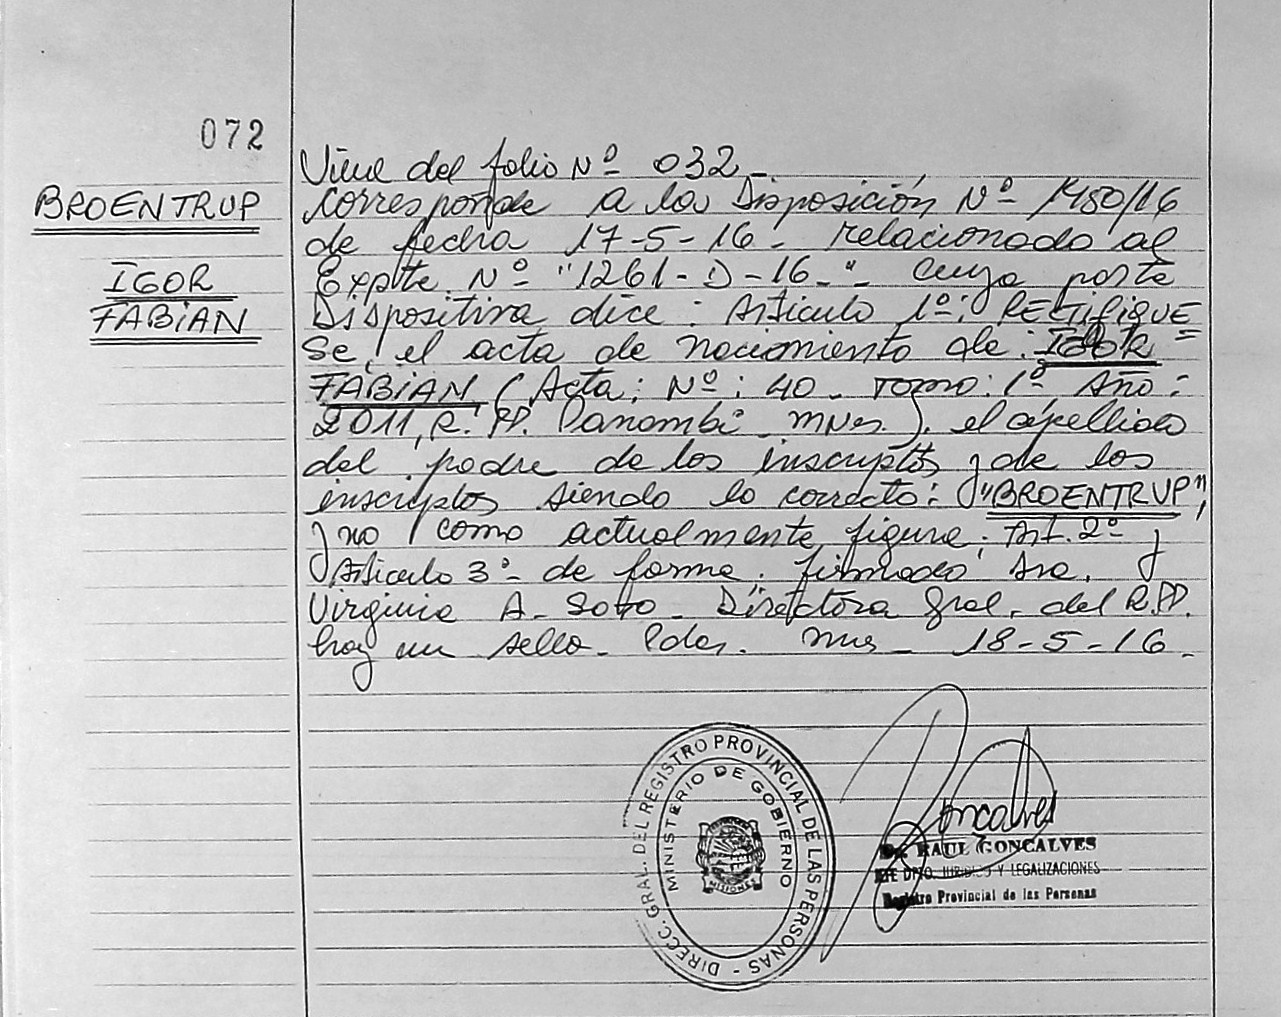 072
BROENTRUP
IGOR
FABIAN
Viene del folio Nº 032.-
Corresponde a la Disposición Nº 1480/16
de fecha 17-5-16- relacionado al
Expte. Nº "1261-D-16-" cuya parte
Dispositiva dice: Artículo 1º: RECTIFIQUE=
se, el acta de nacimiento de: IGOR
FABIAN (Acta: Nº: 40 - Tomo: 1º, Año:
2011, R. PP. Panambí - Mnes.), el apellido
del padre de los inscriptos y de los
inscriptos siendo lo correcto: "BROENTRUP",
y no como actualmente figura; Art. 2º y
Artículo 3º- de forma. firmado Sra.
Virginia A. Soto - Directora Gral. del R.PP.
hay un sello. Pdas. Mns - 18-5-16.-
DIRECC. GRAL. DEL REGISTRO PROVINCIAL DE LAS PERSONAS -
MINISTERIO DE GOBIERNO
MISIONES
Goncalves
Dr. RAUL GONCALVES
JEFE DPTO. JURIDICO Y LEGALIZACIONES
Registro Provincial de las Personas